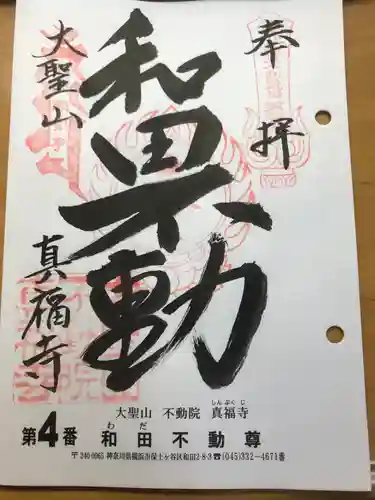 奉拝
和田不動
大聖山
真福寺
大聖山 不動院 真福寺
しんぷくじ
第4番 和田不動尊
わだ
〒240-0065 神奈川県横浜市保土ヶ谷区和田2-8-3 ☎(045)332-4671番